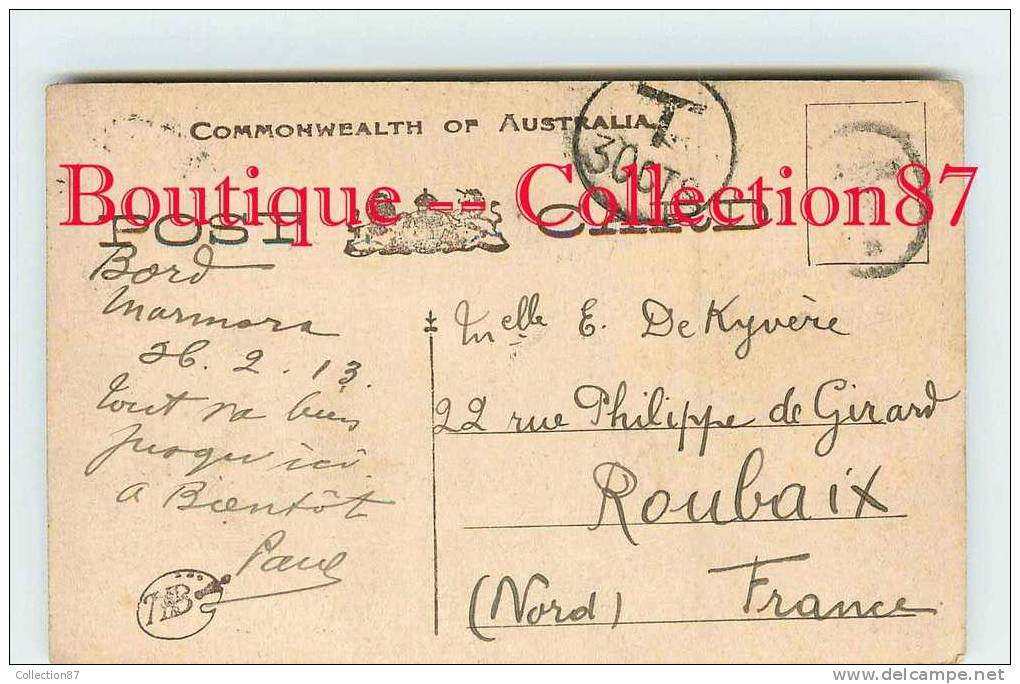 COMMONWEALTH OF AUSTRALIA.
T
30 CTS
Boutique -- Collection87
POST CARD
Bord
Marmora
26. 2. 13.
tout va bien
jusqu'ici
a Bientôt
Paul
Melle E. DeKyvère
22 rue Philippe de Girard
Roubaix
(Nord) France
Collection87
delcampe.net